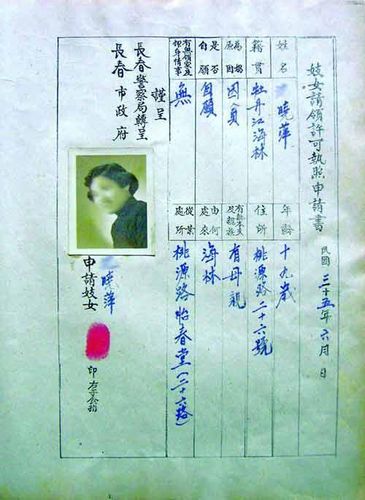 妓女請領許可執照申請書
民國三十五年六月 日
姓名
曉萍
年齡
十九歲
籍貫
牡丹江海林
住所
桃源路二十六號
為娼原因
因貧
有無本夫及親族
有母親
是否自願
自願
由何處來
海林
有無領家及押身情事
無
從業處所
桃源路怡春堂(二十六號)
謹呈
長春警察局轉呈
長春市政府
申請妓女 曉萍
印 右手食指